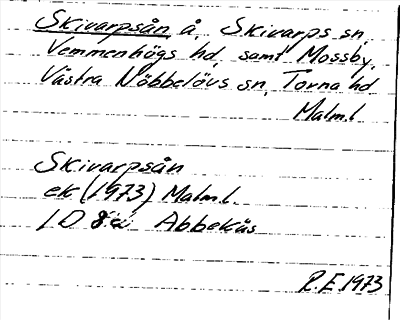 Skivarpsån å, Skivarps sn,
Vemmenhögs hd, samt Mossby,
Västra Nöbbelövs sn, Torna hd
Malm.l
Skivarpsån
ek (1973) Malm.l.
1D Abbekås
R.E 1973